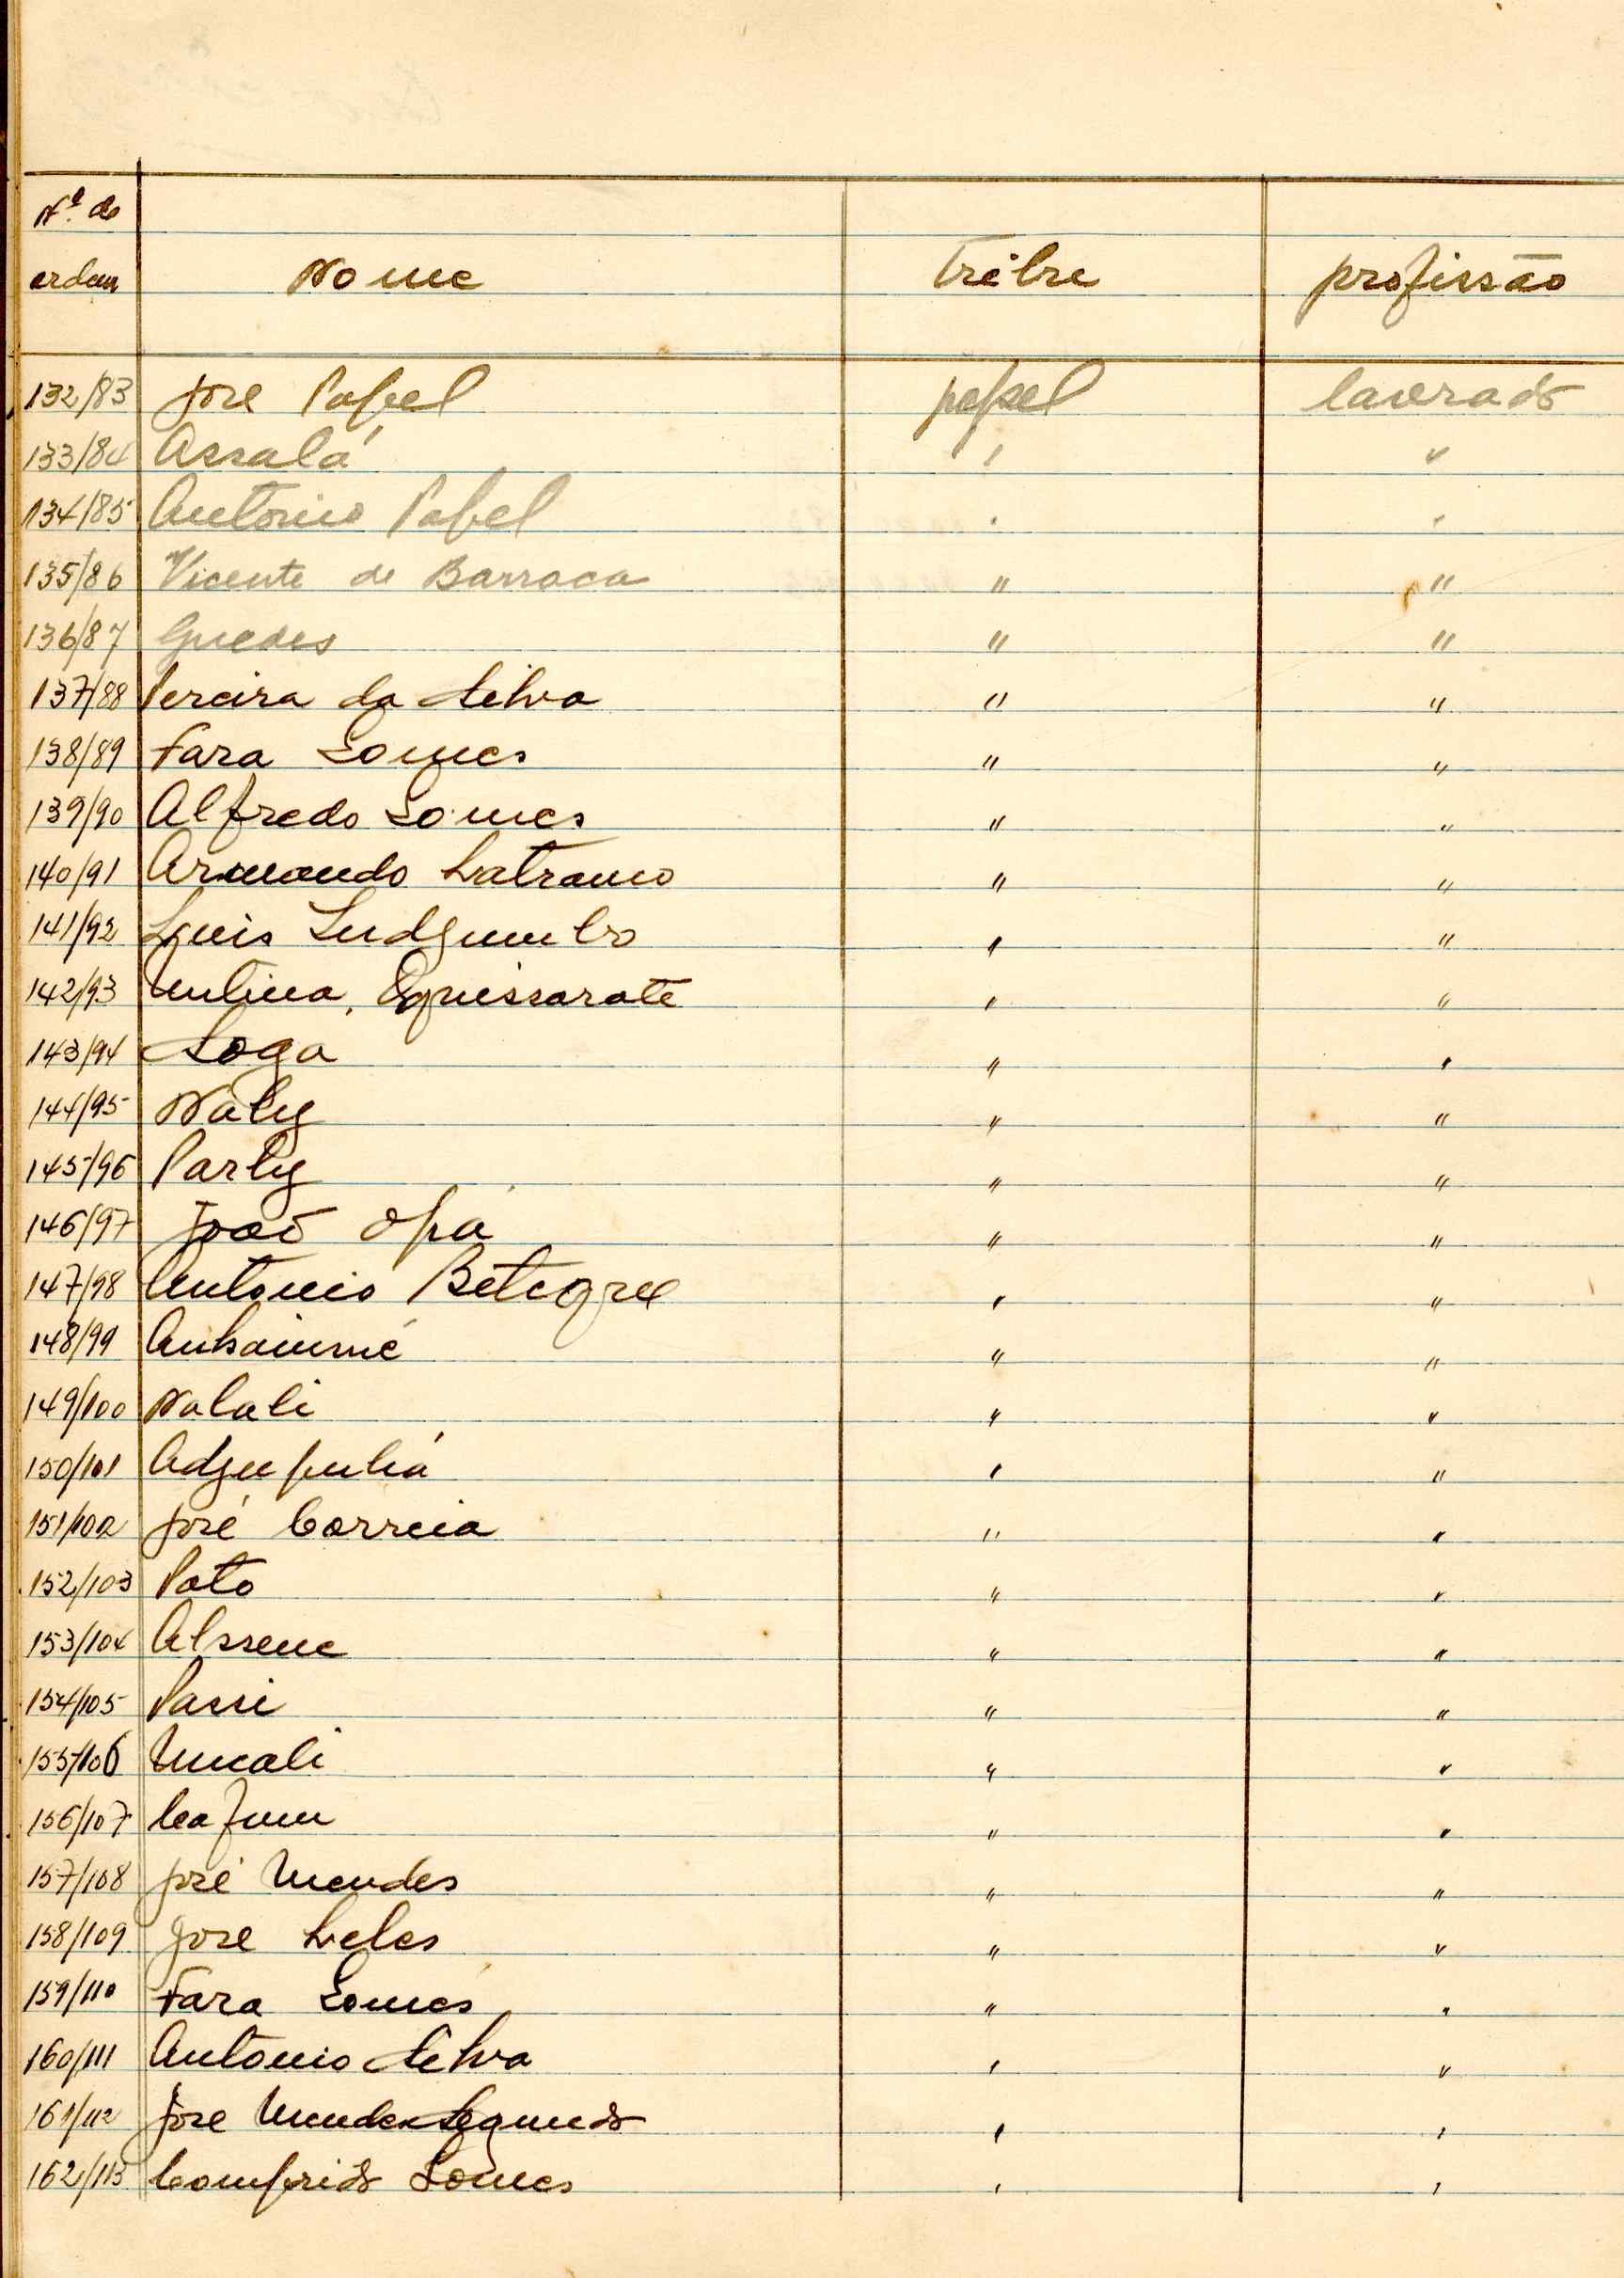 Nº de
ordem Nome Tribre profissão
132/83 José Papel papel lavrado
133/84 Assalá " "
134/85 Antonio Papel " "
135/86 Vicente de Barraca " "
136/87 Guedes " "
137/88 Pereira da Silva " "
138/89 Fara Gomes " "
139/90 Alfredo Gomes " "
140/91 Armando " "
141/92 Luis " "
142/93 " "
143/94 Soga " "
144/95 Naly " "
145/96 Parly " "
146/97 João Opá " "
147/98 Antonio " "
148/99 " "
149/100 Nalali " "
150/101 " "
151/102 José Correia " "
152/103 Pato " "
153/104 Alssene " "
154/105 Passi " "
155/106 " "
156/107 " "
157/108 José Mendes " "
158/109 José " "
159/110 Fara Gomes " "
160/111 Antonio Silva " "
161/112 José Mendes Segundo " "
162/113 Comprido Gomes " "